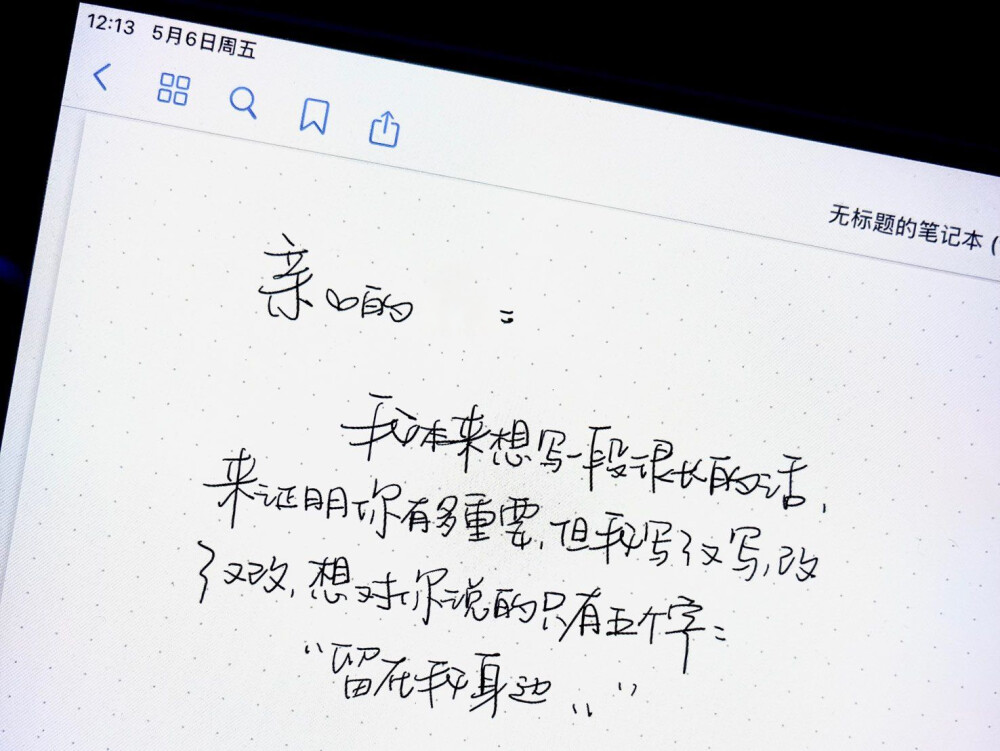 12:13 5月6日周五
无标题的笔记本 (
亲口的 :
我本来想写一段很长的话,
来证明你有多重要,但我写了又写,改
了又改,想对你说的只有五个字:
“留在我身边..”